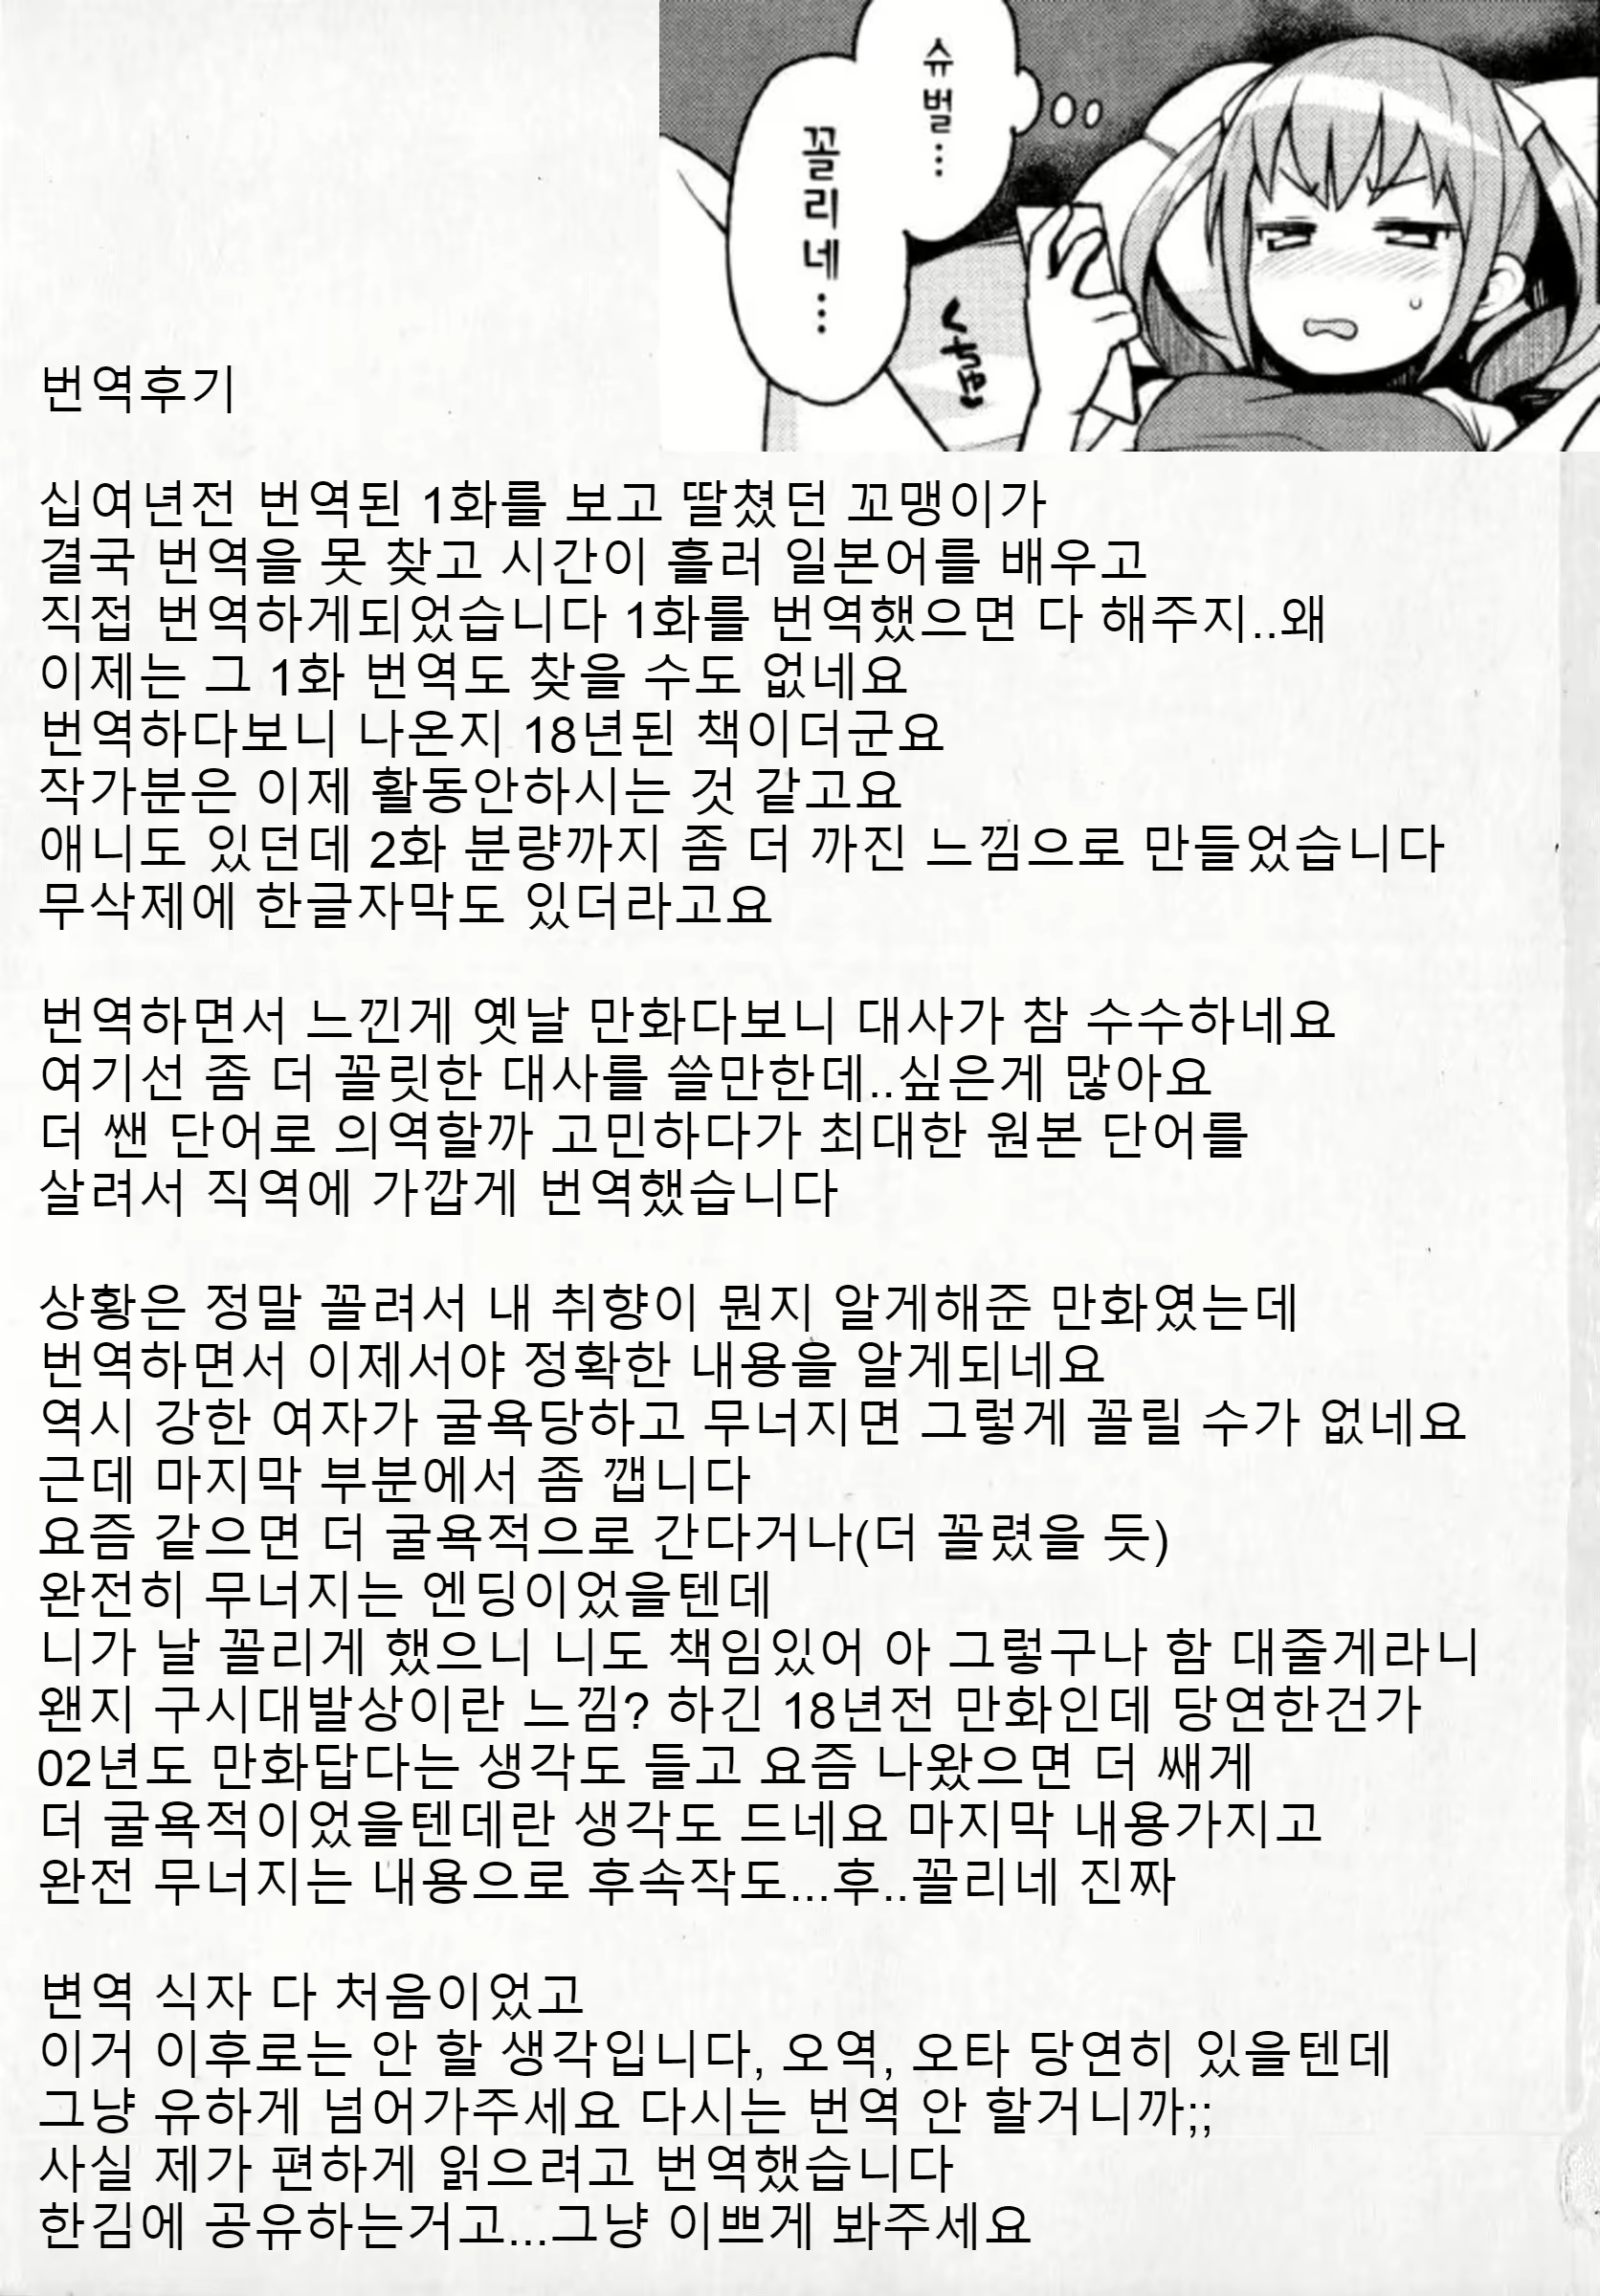 슈벌…
꼴리네…
くちゅ
번역후기
십여년전 번역된 1화를 보고 딸쳤던 꼬맹이가
결국 번역을 못 찾고 시간이 흘러 일본어를 배우고
직접 번역하게되었습니다 1화를 번역했으면 다 해주지..왜
이제는 그 1화 번역도 찾을 수도 없네요
번역하다보니 나온지 18년된 책이더군요
작가분은 이제 활동안하시는 것 같고요
애니도 있던데 2화 분량까지 좀 더 까진 느낌으로 만들었습니다
무삭제에 한글자막도 있더라고요
번역하면서 느낀게 옛날 만화다보니 대사가 참 수수하네요
여기선 좀 더 꼴릿한 대사를 쓸만한데..싶은게 많아요
더 쌘 단어로 의역할까 고민하다가 최대한 원본 단어를
살려서 직역에 가깝게 번역했습니다
상황은 정말 꼴려서 내 취향이 뭔지 알게해준 만화였는데
번역하면서 이제서야 정확한 내용을 알게되네요
역시 강한 여자가 굴욕당하고 무너지면 그렇게 꼴릴 수가 없네요
근데 마지막 부분에서 좀 깹니다
요즘 같으면 더 굴욕적으로 간다거나(더 꼴렸을 듯)
완전히 무너지는 엔딩이었을텐데
니가 날 꼴리게 했으니 니도 책임있어 아 그렇구나 함 대줄게라니
왠지 구시대발상이란 느낌? 하긴 18년전 만화인데 당연한건가
02년도 만화답다는 생각도 들고 요즘 나왔으면 더 쌔게
더 굴욕적이었을텐데란 생각도 드네요 마지막 내용가지고
완전 무너지는 내용으로 후속작도...후..꼴리네 진짜
변역 식자 다 처음이었고
이거 이후로는 안 할 생각입니다, 오역, 오타 당연히 있을텐데
그냥 유하게 넘어가주세요 다시는 번역 안 할거니까;;
사실 제가 편하게 읽으려고 번역했습니다
한김에 공유하는거고...그냥 이쁘게 봐주세요